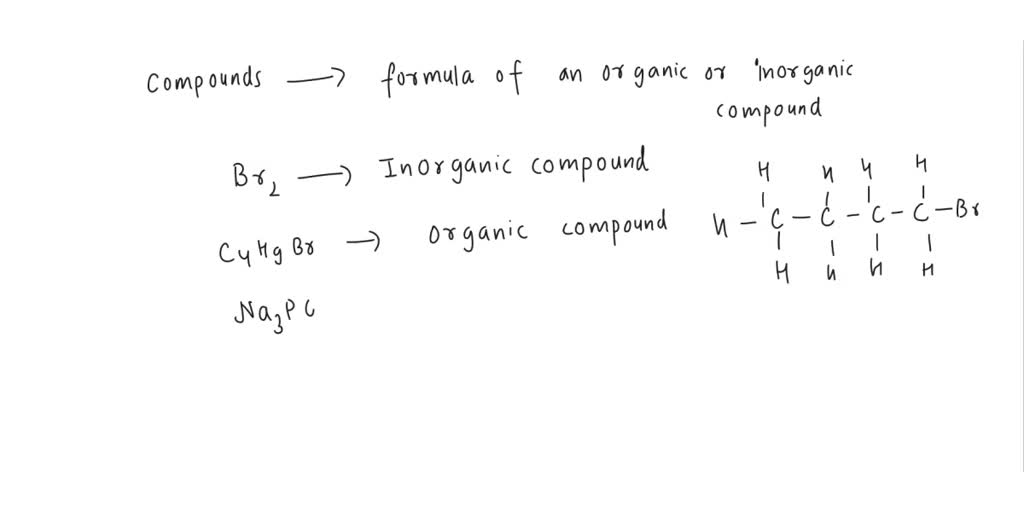 Compounds → formula of an organic or inorganic
compound
Br2 → Inorganic compound
C4H9Br → organic compound
H H H H
H - C - C - C - C - Br
H H H H
Na3PO